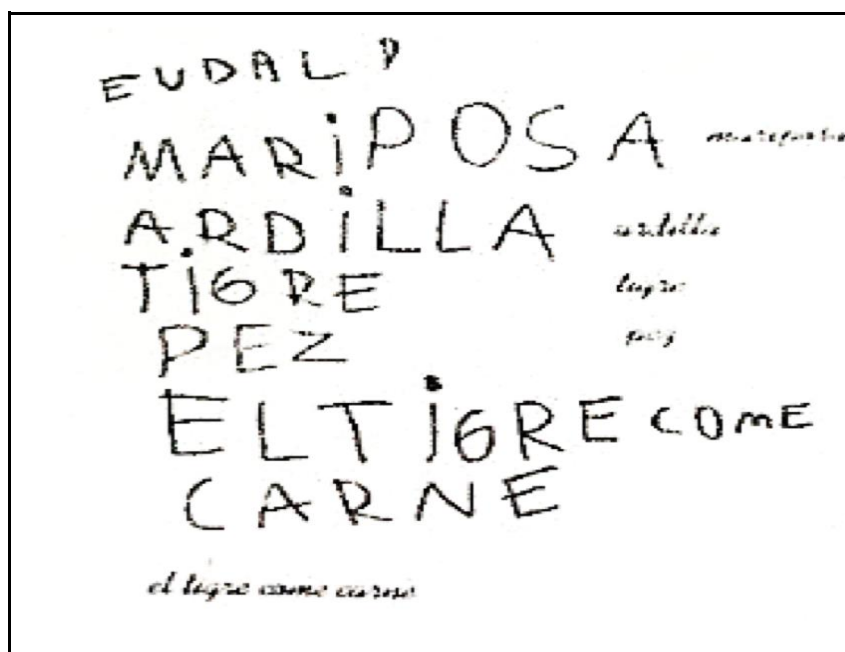 EUDALD
MARiPOSA mariposa
ARDiLLA ardilla
TiGRE tigre
PEZ pez
ELTiGRE COmE
CARNE
el tigre come carne